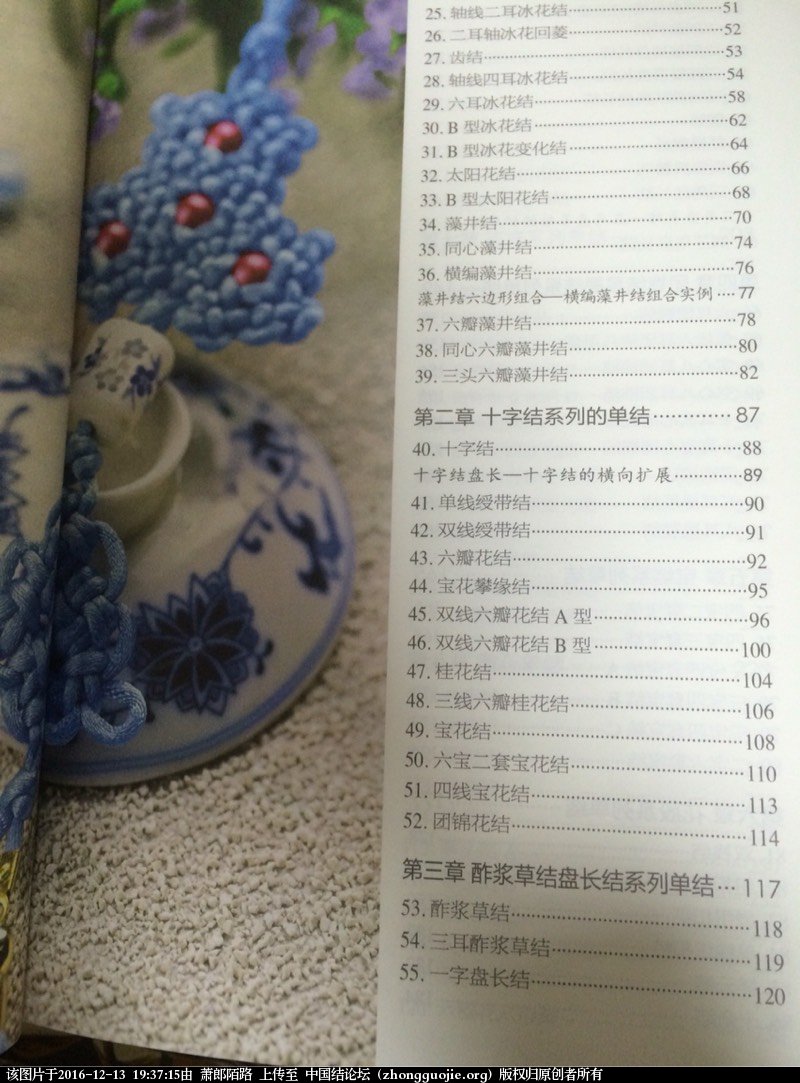 25. 轴线二耳冰花结 51
26. 二耳轴冰花回菱 52
27. 齿结 53
28. 轴线四耳冰花结 54
29. 六耳冰花结 58
30. B 型冰花结 62
31. B 型冰花变化结 64
32. 太阳花结 66
33. B 型太阳花结 68
34. 藻井结 70
35. 同心藻井结 74
36. 横编藻井结 76
藻井结六边形组合—横编藻井结组合实例 77
37. 六瓣藻井结 78
38. 同心六瓣藻井结 80
39. 三头六瓣藻井结 82
第二章 十字结系列的单结 87
40. 十字结 88
十字结盘长—十字结的横向扩展 89
41. 单线绶带结 90
42. 双线绶带结 91
43. 六瓣花结 92
44. 宝花攀缘结 95
45. 双线六瓣花结 A 型 96
46. 双线六瓣花结 B 型 100
47. 桂花结 104
48. 三线六瓣桂花结 106
49. 宝花结 108
50. 六宝二套宝花结 110
51. 四线宝花结 113
52. 团锦花结 114
第三章 酢浆草结盘长结系列单结 117
53. 酢浆草结 118
54. 三耳酢浆草结 119
55. 一字盘长结 120
该图片于2016-12-13 19:37:15由 萧郎陌路 上传至 中国结论坛 (zhongguojie.org) 版权归原创者所有